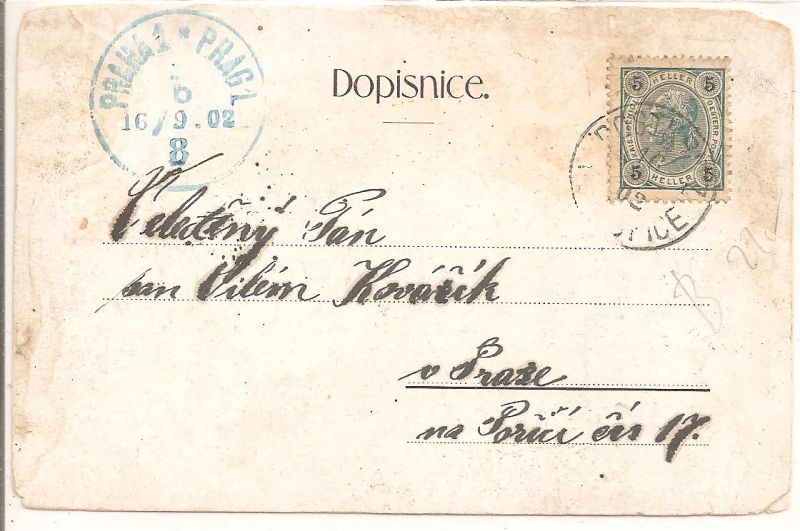 PRAHA 1 * PRAG 1
6
16/9.02
8
Dopisnice.
5 HELLER 5
5 HELLER 5
02
Pán
pan Vilém Kovářík
v Praze
na Poříčí čís 17.